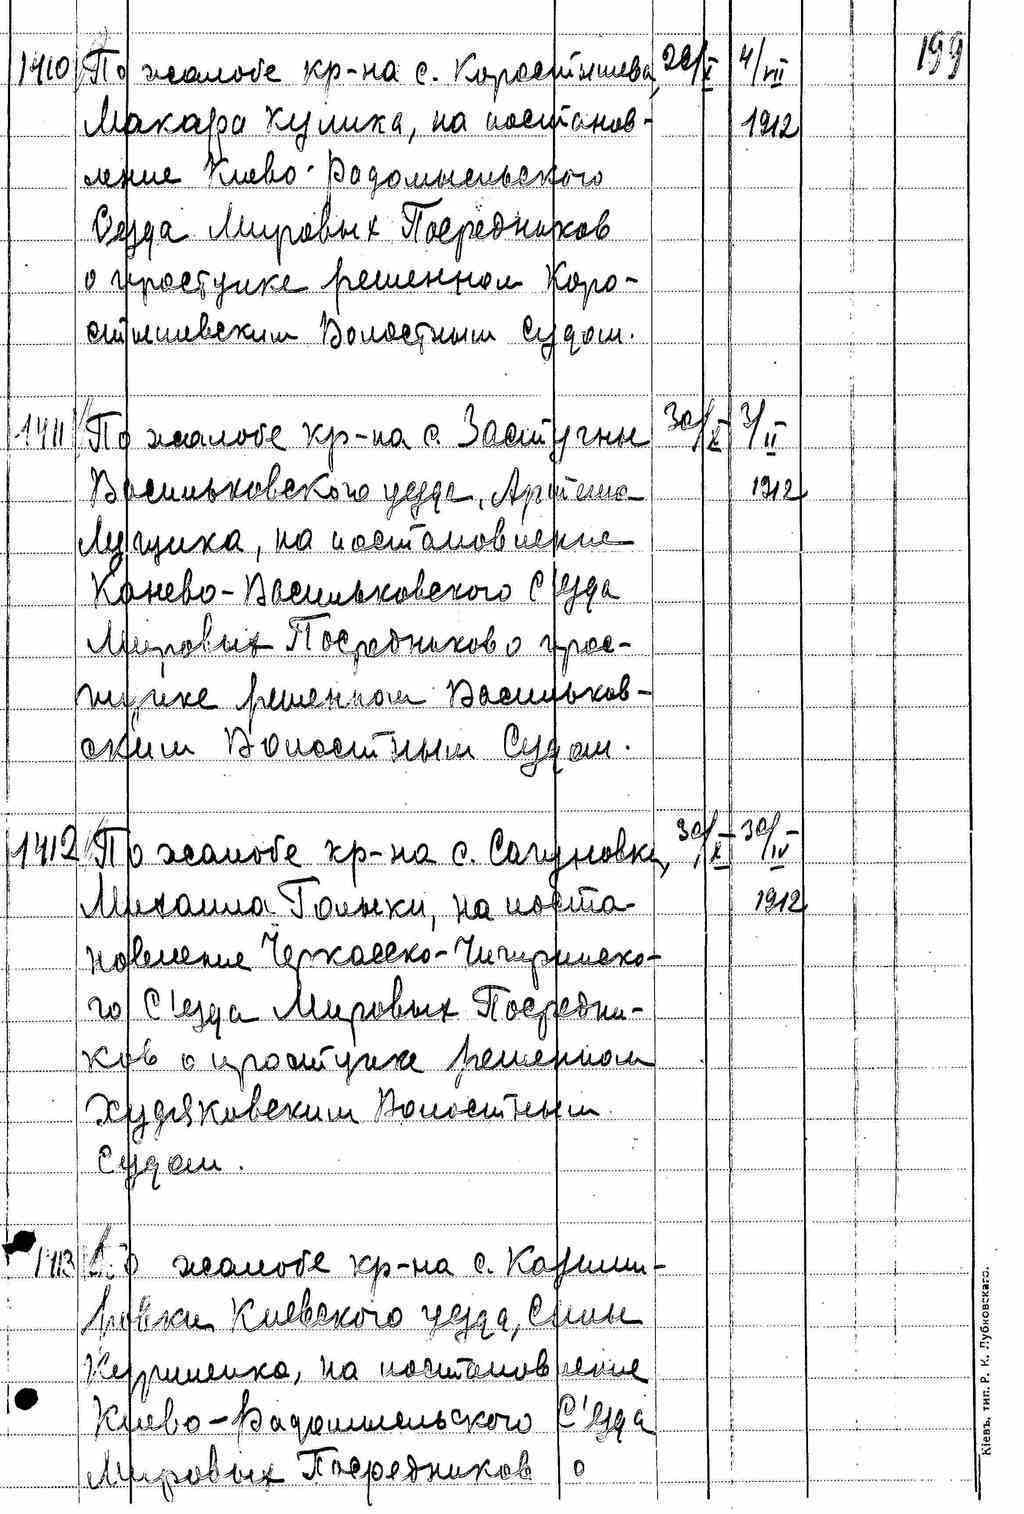 199
1410 По жалобе кр-на с. Коростышева, 29/X 4/VII
Макара Кулика, на постанов- 1912
ление Киево-Радомысльского
Сезда Мировых Посредников
о проступке решенном Коро-
стышевским Волостным Судом.
1411 По жалобе кр-на с. Застугны 30/X 3/II
Васильковского уезда, Артема 1912
Лущика, на постановление
Канево-Васильковского С'езда
Мировых Посредников о прос-
тупке решенном Васильков-
ским Волостным Судом.
1412 По жалобе кр-на с. Сагуновки, 30/X 30/IV
Михаила Голыки, на поста- 1912
новление Черкасско-Чигиринско-
го С'езда Мировых Посредни-
ков о проступке решенном
Худяковским Волостным
Судом.
1413 По жалобе кр-на с. Казими-
ровки Киевского уезда, Силы
на постановление
Киево-Радомысльского С'езда
Мировых Посредников о
Кіевъ, тип. Р. К. Лубковскаго.